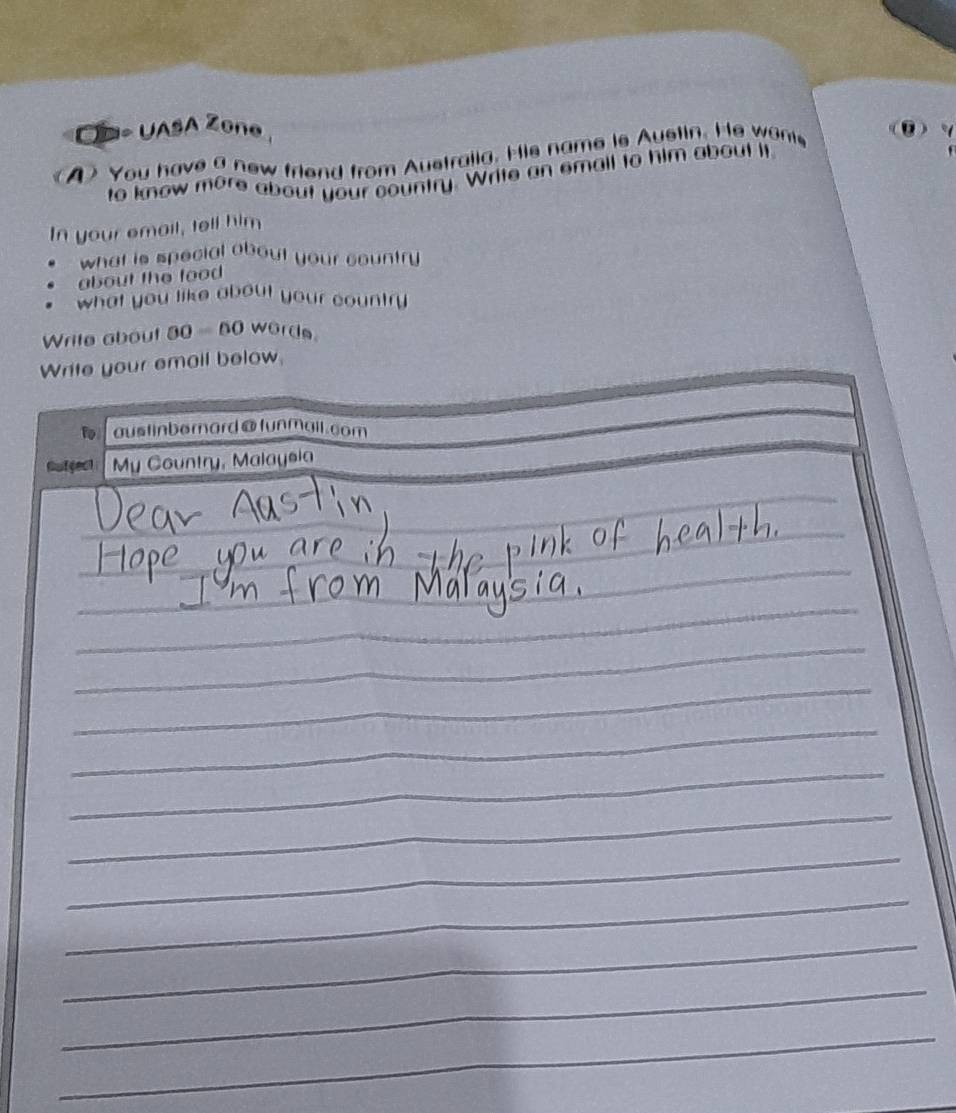 UASA Zone
A You have a new friend from Australia. His name is Austin. He wants
to know more about your country. Write an email to him about it.
In your email, tell him
• what is special about your country
• about the food
• what you like about your country
Write about 30 – 50 words.
Write your email below.
To austinbernard@funmail.com
Subject My Country, Malaysia
Dear Aastin,
Hope you are in the pink of health.
I'm from Malaysia.
B